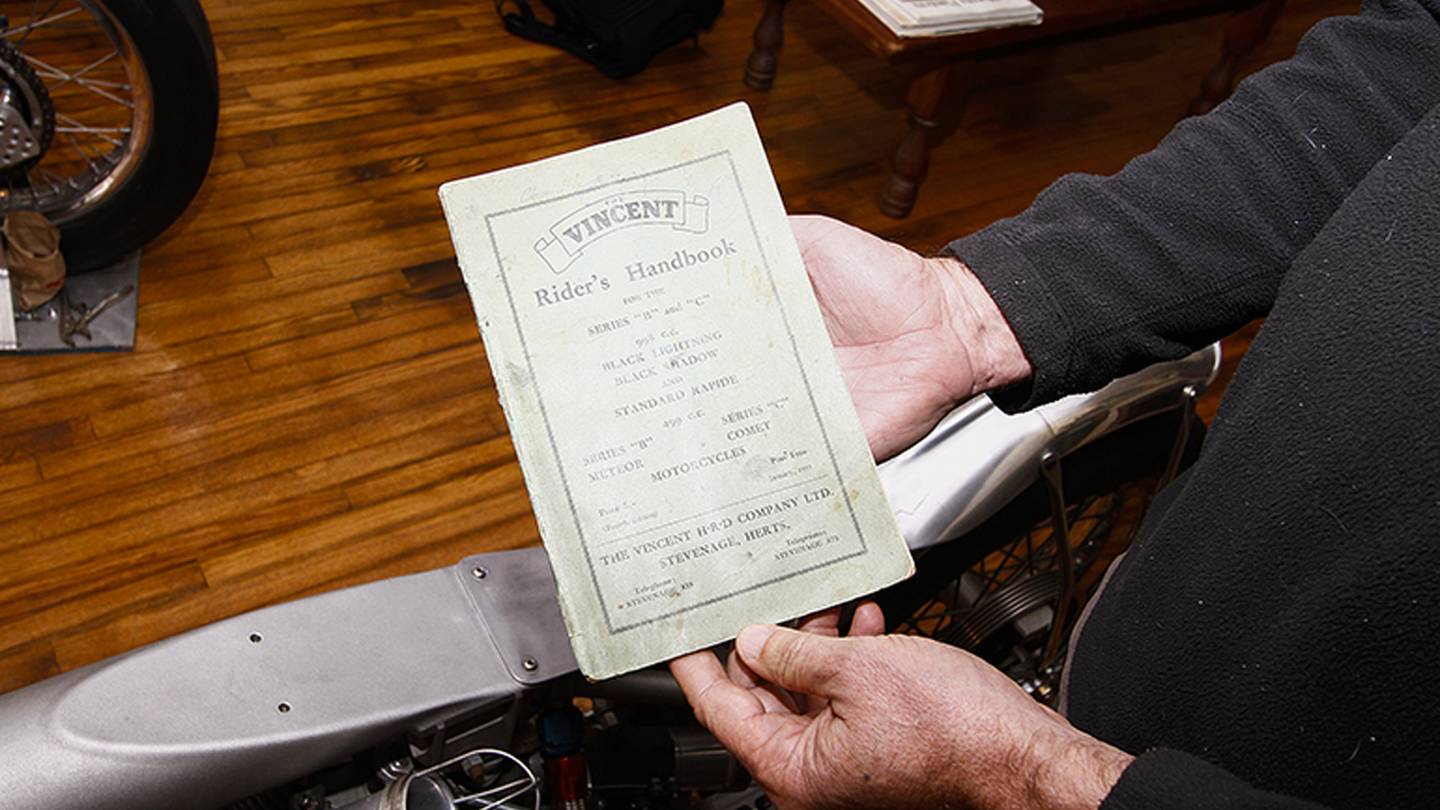 THE
VINCENT
Rider's Handbook
FOR THE
SERIES "B" and "C"
998 c.c.
BLACK LIGHTNING
BLACK SHADOW
AND
STANDARD RAPIDE
499 c.c.
SERIES "B" SERIES "C"
METEOR COMET
MOTORCYCLES
Price
THE VINCENT H·R·D COMPANY LTD.
STEVENAGE, HERTS.
Telephone: Telegrams:
STEVENAGE STEVENAGE